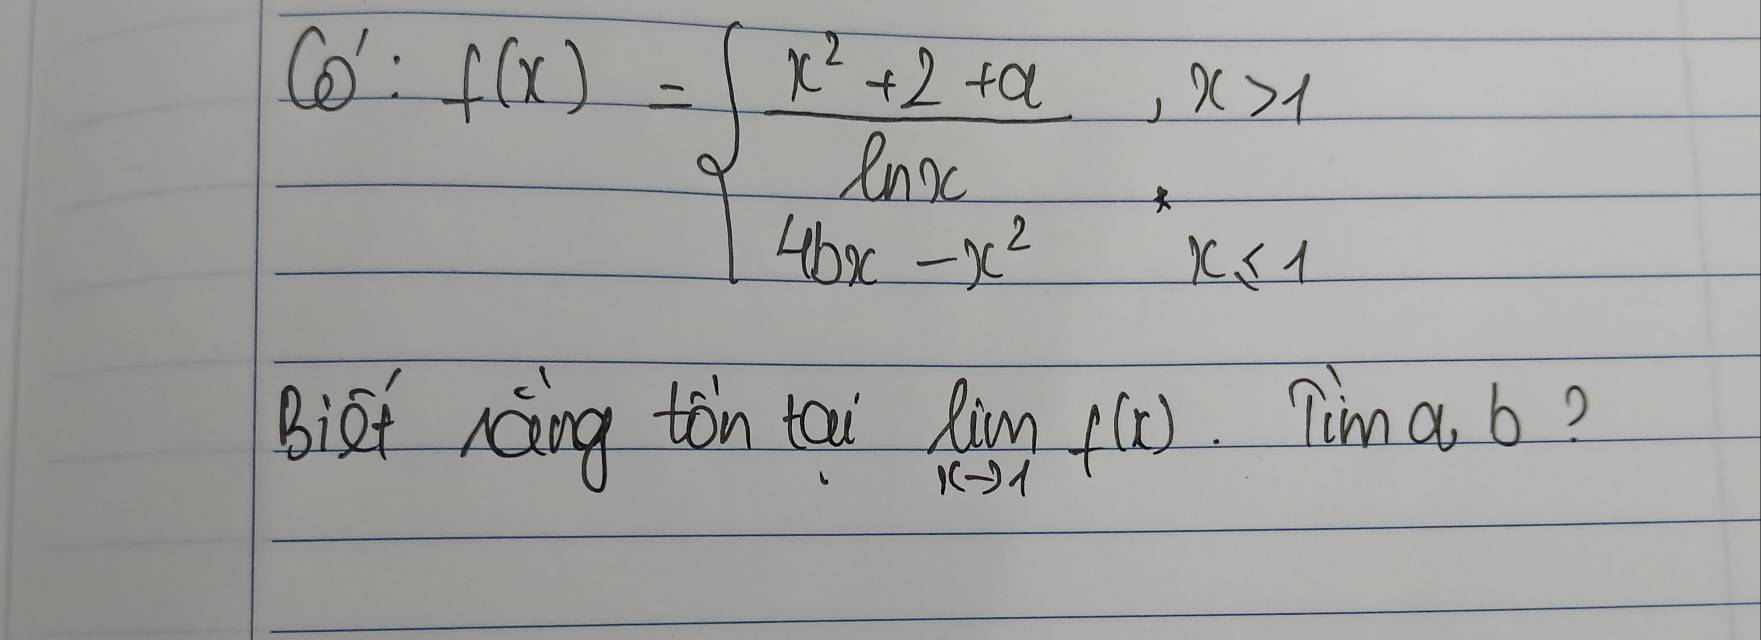 Có: f(x) = { (x² + 2 + a) / ln x , x > 1
4bx - x² x ≤ 1
Biết rằng tồn tại lim x→1 f(x). Tìm a, b ?